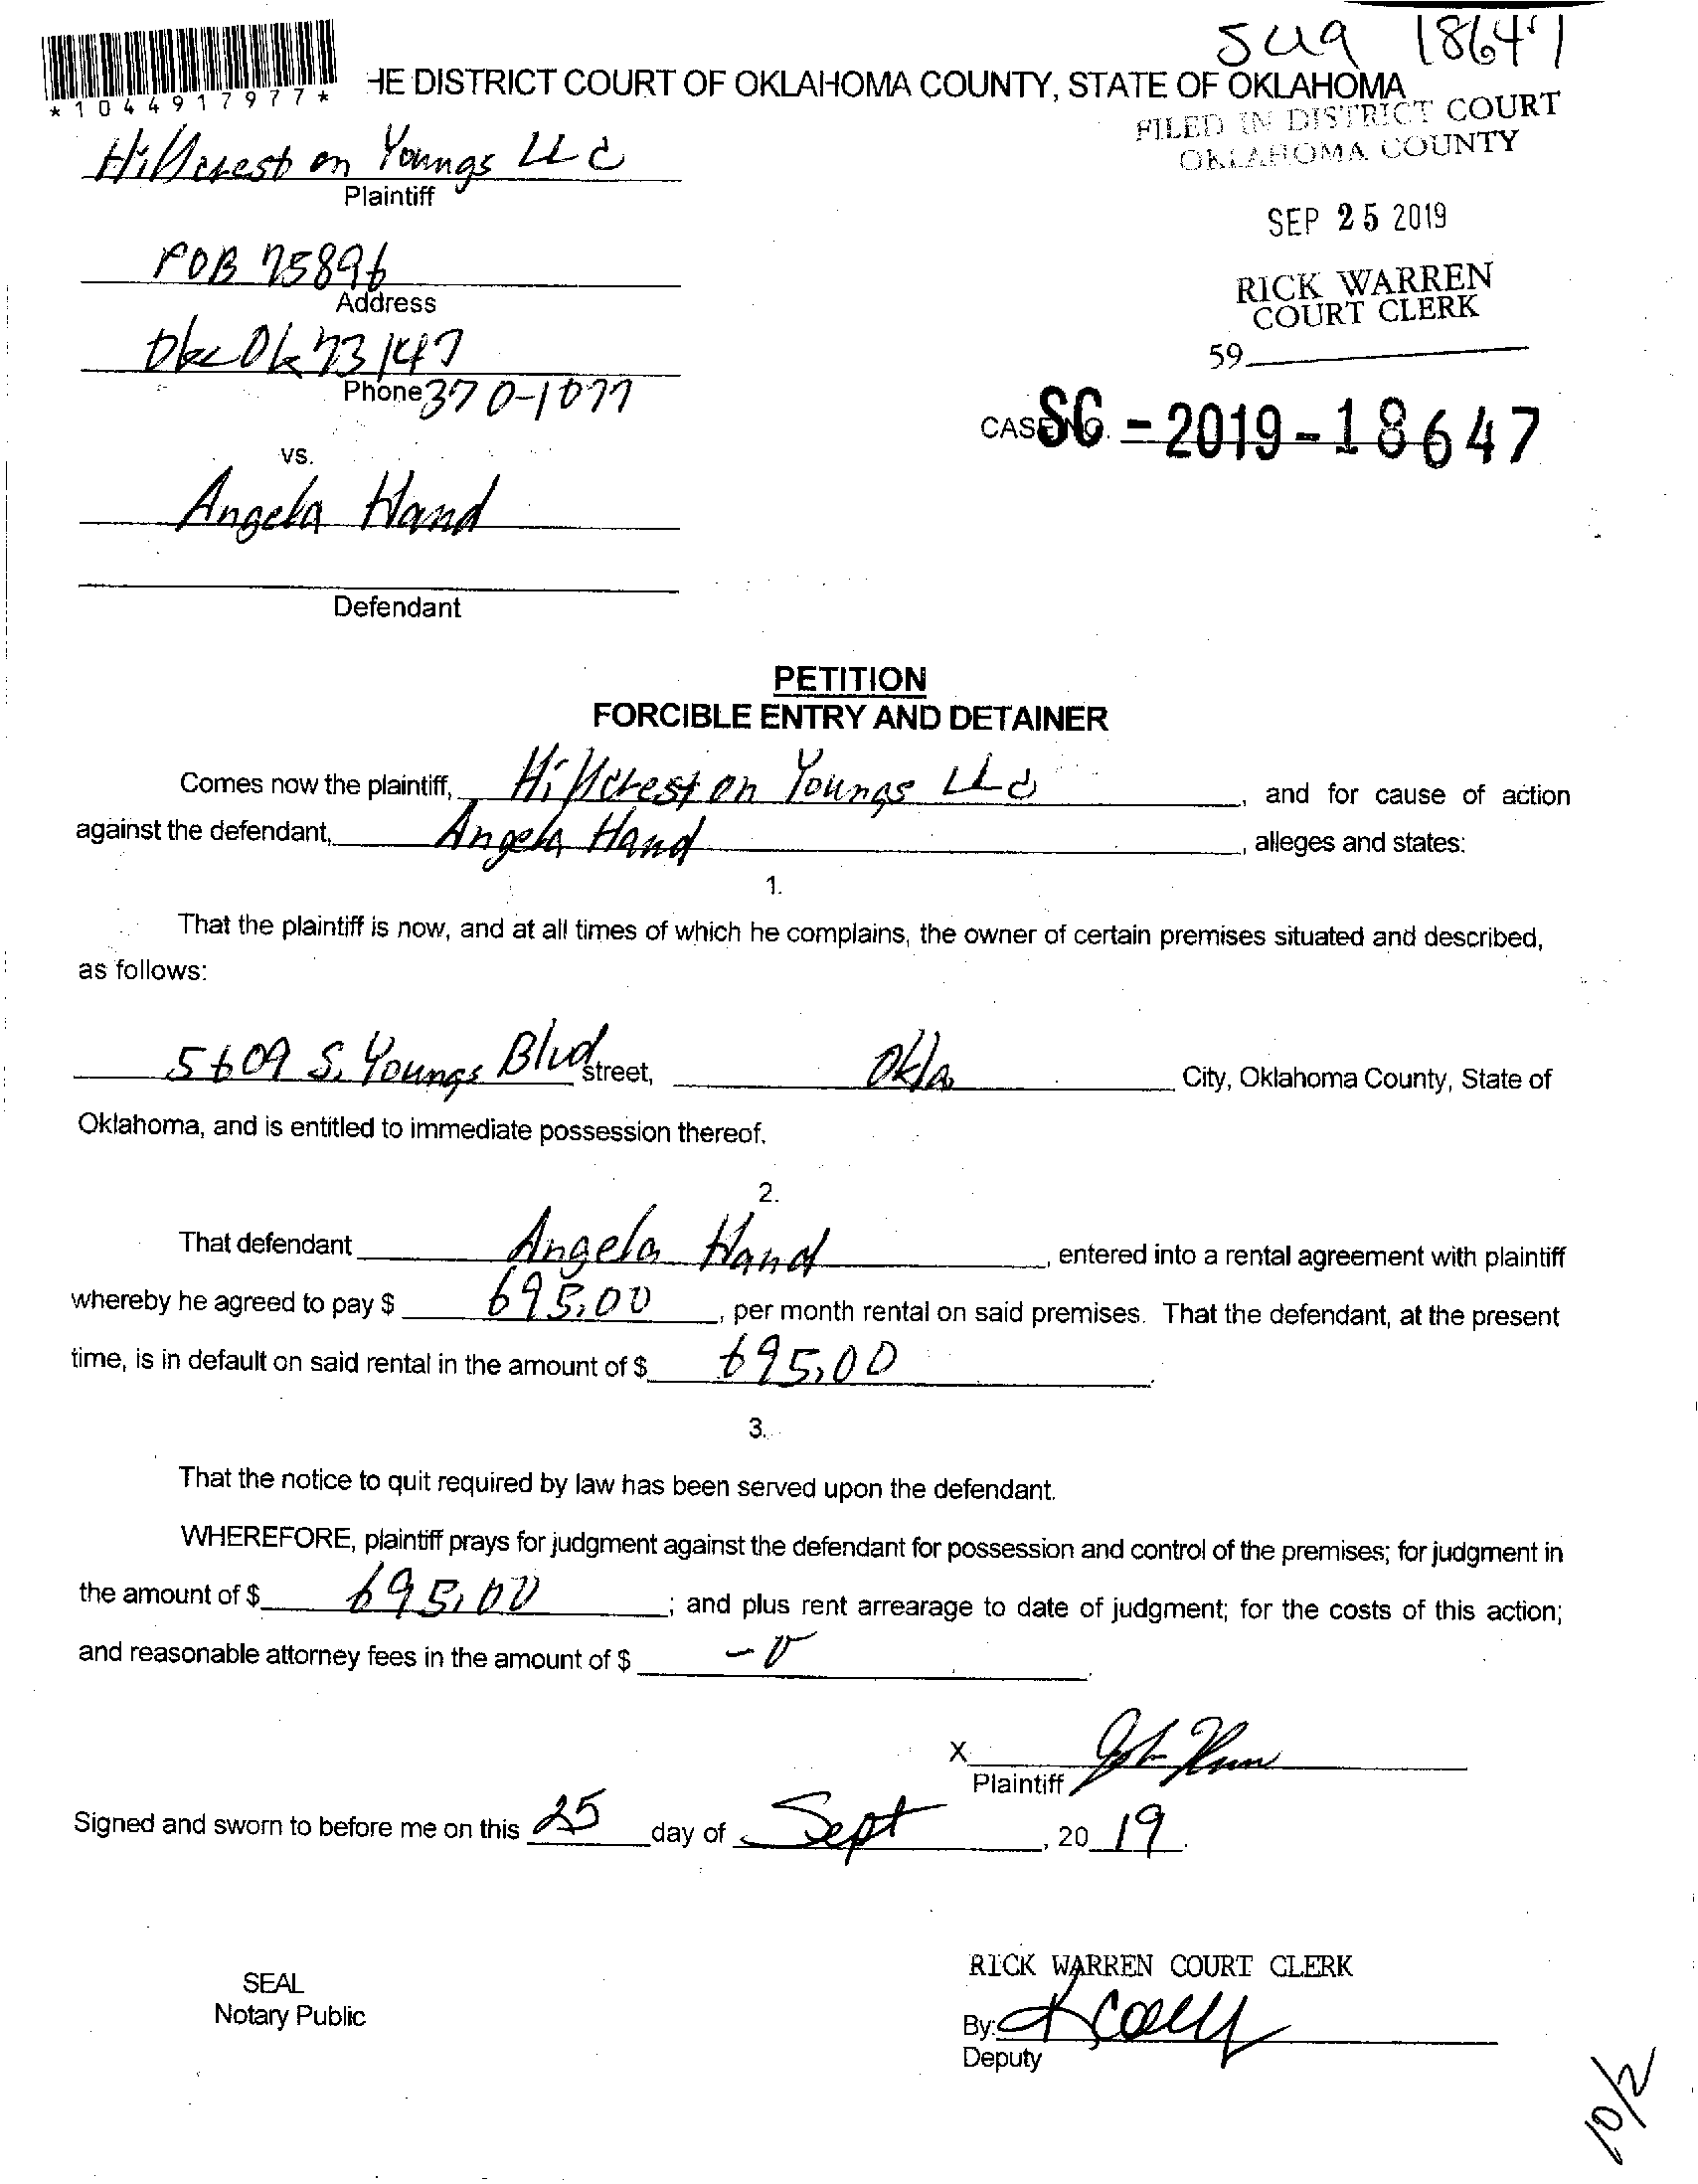 SU19 18647
HE DISTRICT COURT OF OKLAHOMA COUNTY, STATE OF OKLAHOMA
*1044917977*
FILED IN DISTRICT COURT
OKLAHOMA COUNTY
Hillcrest on Youngs LLC
Plaintiff
SEP 25 2019
POB 75896
Address
RICK WARREN
COURT CLERK
Okc Ok 73147
59
Phone 370-1077
CASE NO. SC - 2019 - 18647
vs.
Angela Hand
Defendant
PETITION
FORCIBLE ENTRY AND DETAINER
Comes now the plaintiff, Hillcrest on Youngs LLC, and for cause of action
against the defendant, Angela Hand, alleges and states:
1.
That the plaintiff is now, and at all times of which he complains, the owner of certain premises situated and described,
as follows:
5609 S. Youngs Blvd street, Okla City, Oklahoma County, State of
Oklahoma, and is entitled to immediate possession thereof.
2.
That defendant Angela Hand, entered into a rental agreement with plaintiff
whereby he agreed to pay $ 695.00, per month rental on said premises. That the defendant, at the present
time, is in default on said rental in the amount of $ 695.00.
3.
That the notice to quit required by law has been served upon the defendant.
WHEREFORE, plaintiff prays for judgment against the defendant for possession and control of the premises; for judgment in
the amount of $ 695.00; and plus rent arrearage to date of judgment; for the costs of this action;
and reasonable attorney fees in the amount of $ -0.
X
Plaintiff
Signed and sworn to before me on this 25 day of Sept, 20 19.
RICK WARREN COURT CLERK
SEAL
Notary Public
By:
Deputy
10/2